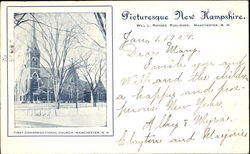 Picturesque New Hampshire.
WILL L. RHODES, PUBLISHER, MANCHESTER, N. H.
Jan. 1. 1904.
Dear Mary.
I wish you and
Will and the children
a happy and pros-
perous New Year.
Alby & Myra.
Clayton and Marjorie
FIRST CONGREGATIONAL CHURCH, MANCHESTER, N. H.